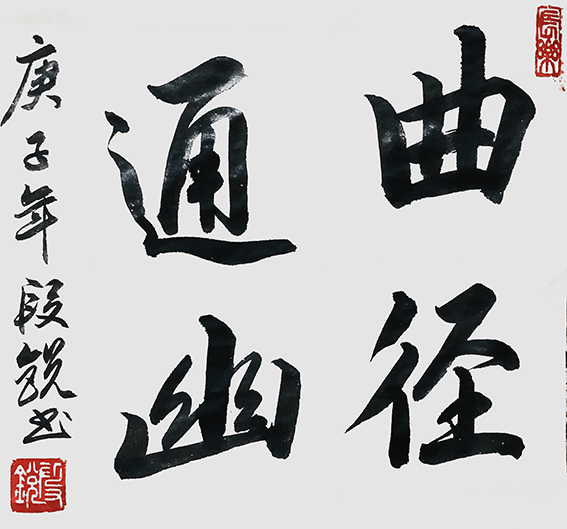 曲径
通幽
庚子年段锐书
段锐